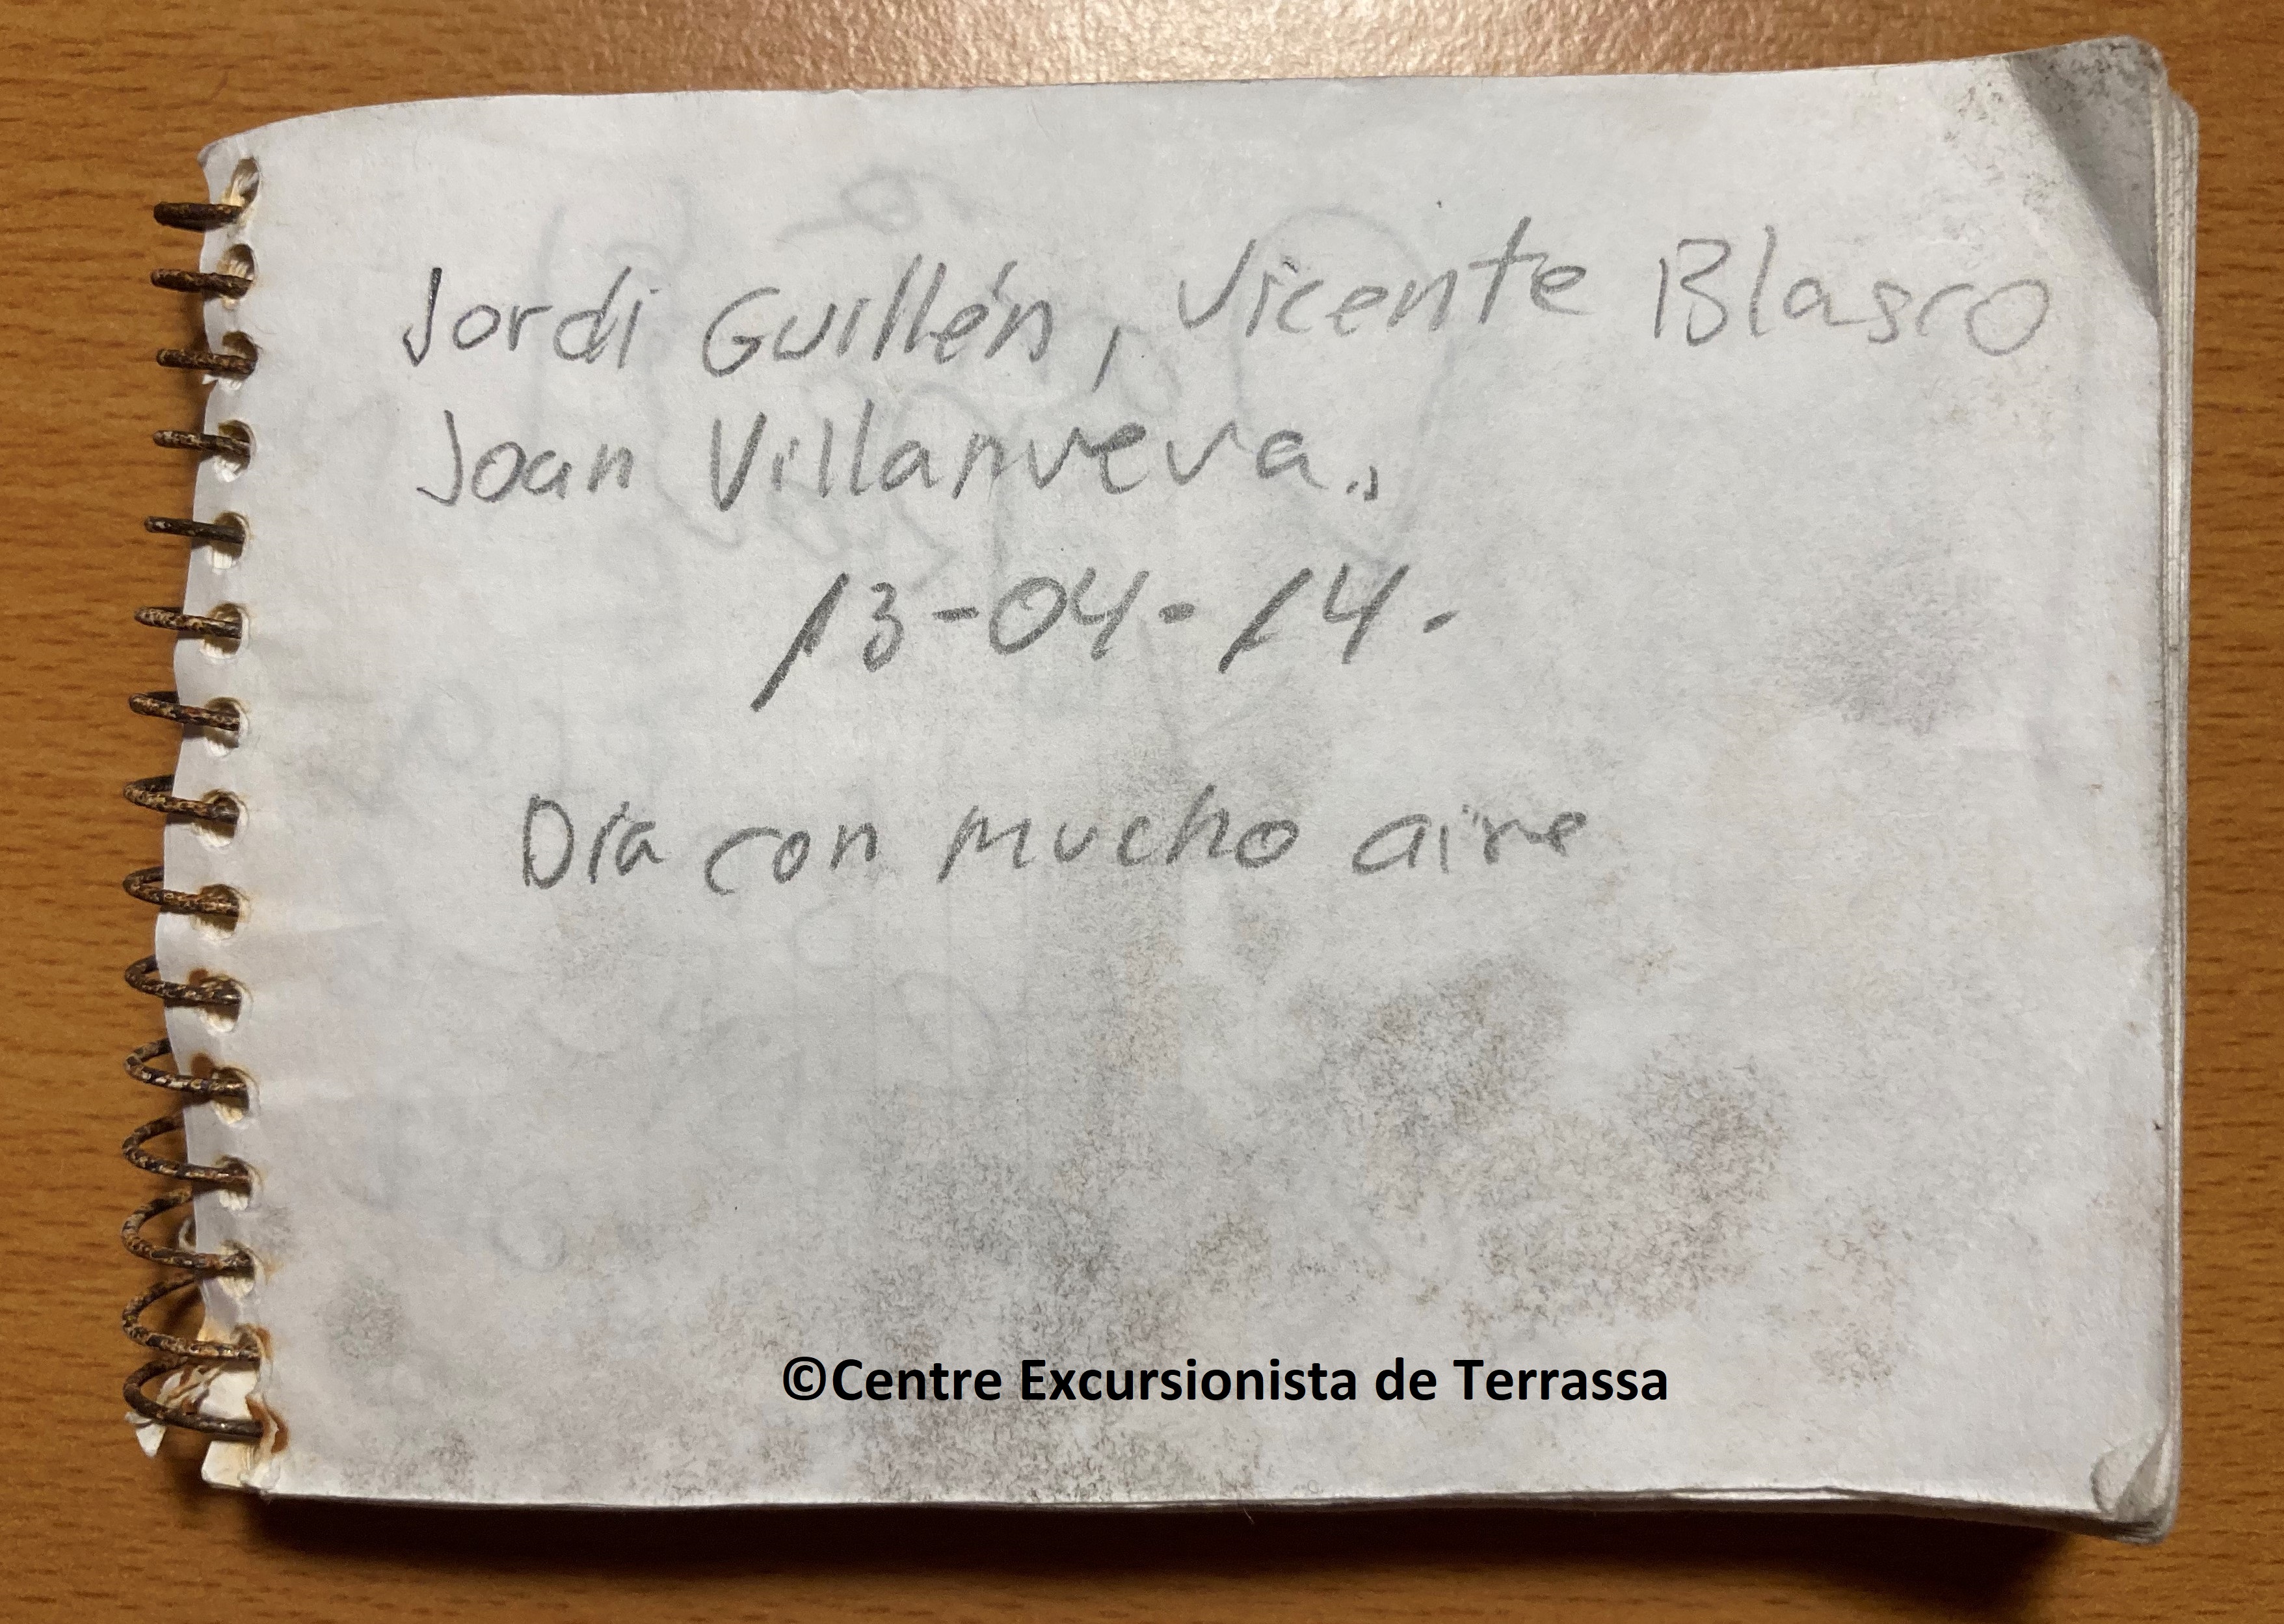 Jordi Guillén, Vicente Blasco
Joan Villanueva.,
13-04-14.
Día con mucho aire
©Centre Excursionista de Terrassa